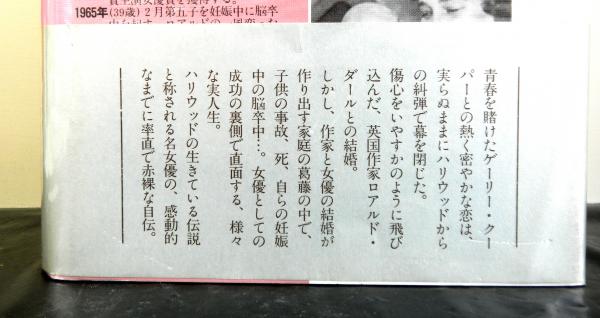 1965年(39歳)2月第五子を妊娠中に脳卒
青春を賭けたゲーリー・クー
パーとの熱く密やかな恋は、
実らぬままにハリウッドから
の糾弾で幕を閉じた。
傷心をいやすかのように飛び
込んだ、英国作家ロアルド・
ダールとの結婚。
しかし、作家と女優の結婚が
作り出す家庭の葛藤の中で、
子供の事故、死、自らの妊娠
中の脳卒中…。女優としての
成功の裏側で直面する、様々
な実人生。
ハリウッドの生きている伝説
と称される名女優の、感動的
なまでに率直で赤裸な自伝。